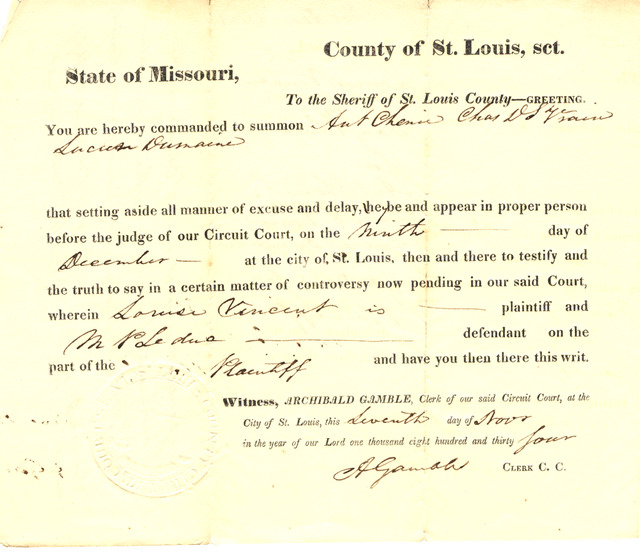 County of St. Louis, sct.
State of Missouri,
To the Sheriff of St. Louis County—GREETING.
You are hereby commanded to summon Ant Chenie Chas D St Vrain
Lucien Dumaine
that setting aside all manner of excuse and delay, they be and appear in proper person
before the judge of our Circuit Court, on the Ninth day of
December at the city of St. Louis, then and there to testify and
the truth to say in a certain matter of controversy now pending in our said Court,
wherein Louise Vincent is plaintiff and
M P Leduc defendant on the
part of the Plaintiff and have you then there this writ.
Witness, ARCHIBALD GAMBLE, Clerk of our said Circuit Court, at the
City of St. Louis, this Seventh day of Novr
in the year of our Lord one thousand eight hundred and thirty four
A Gamble CLERK C. C.